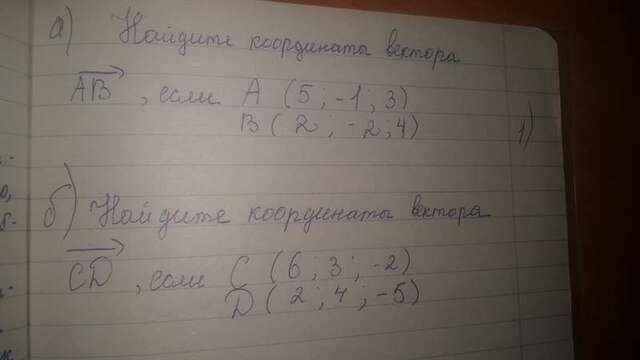 а) Найдите координаты вектора
AB , если A (5 ; -1 ; 3)
B ( 2 ; -2 ; 4)
1)
б) Найдите координаты вектора
CD , если C (6 ; 3 ; -2)
D ( 2 ; 4 ; -5)